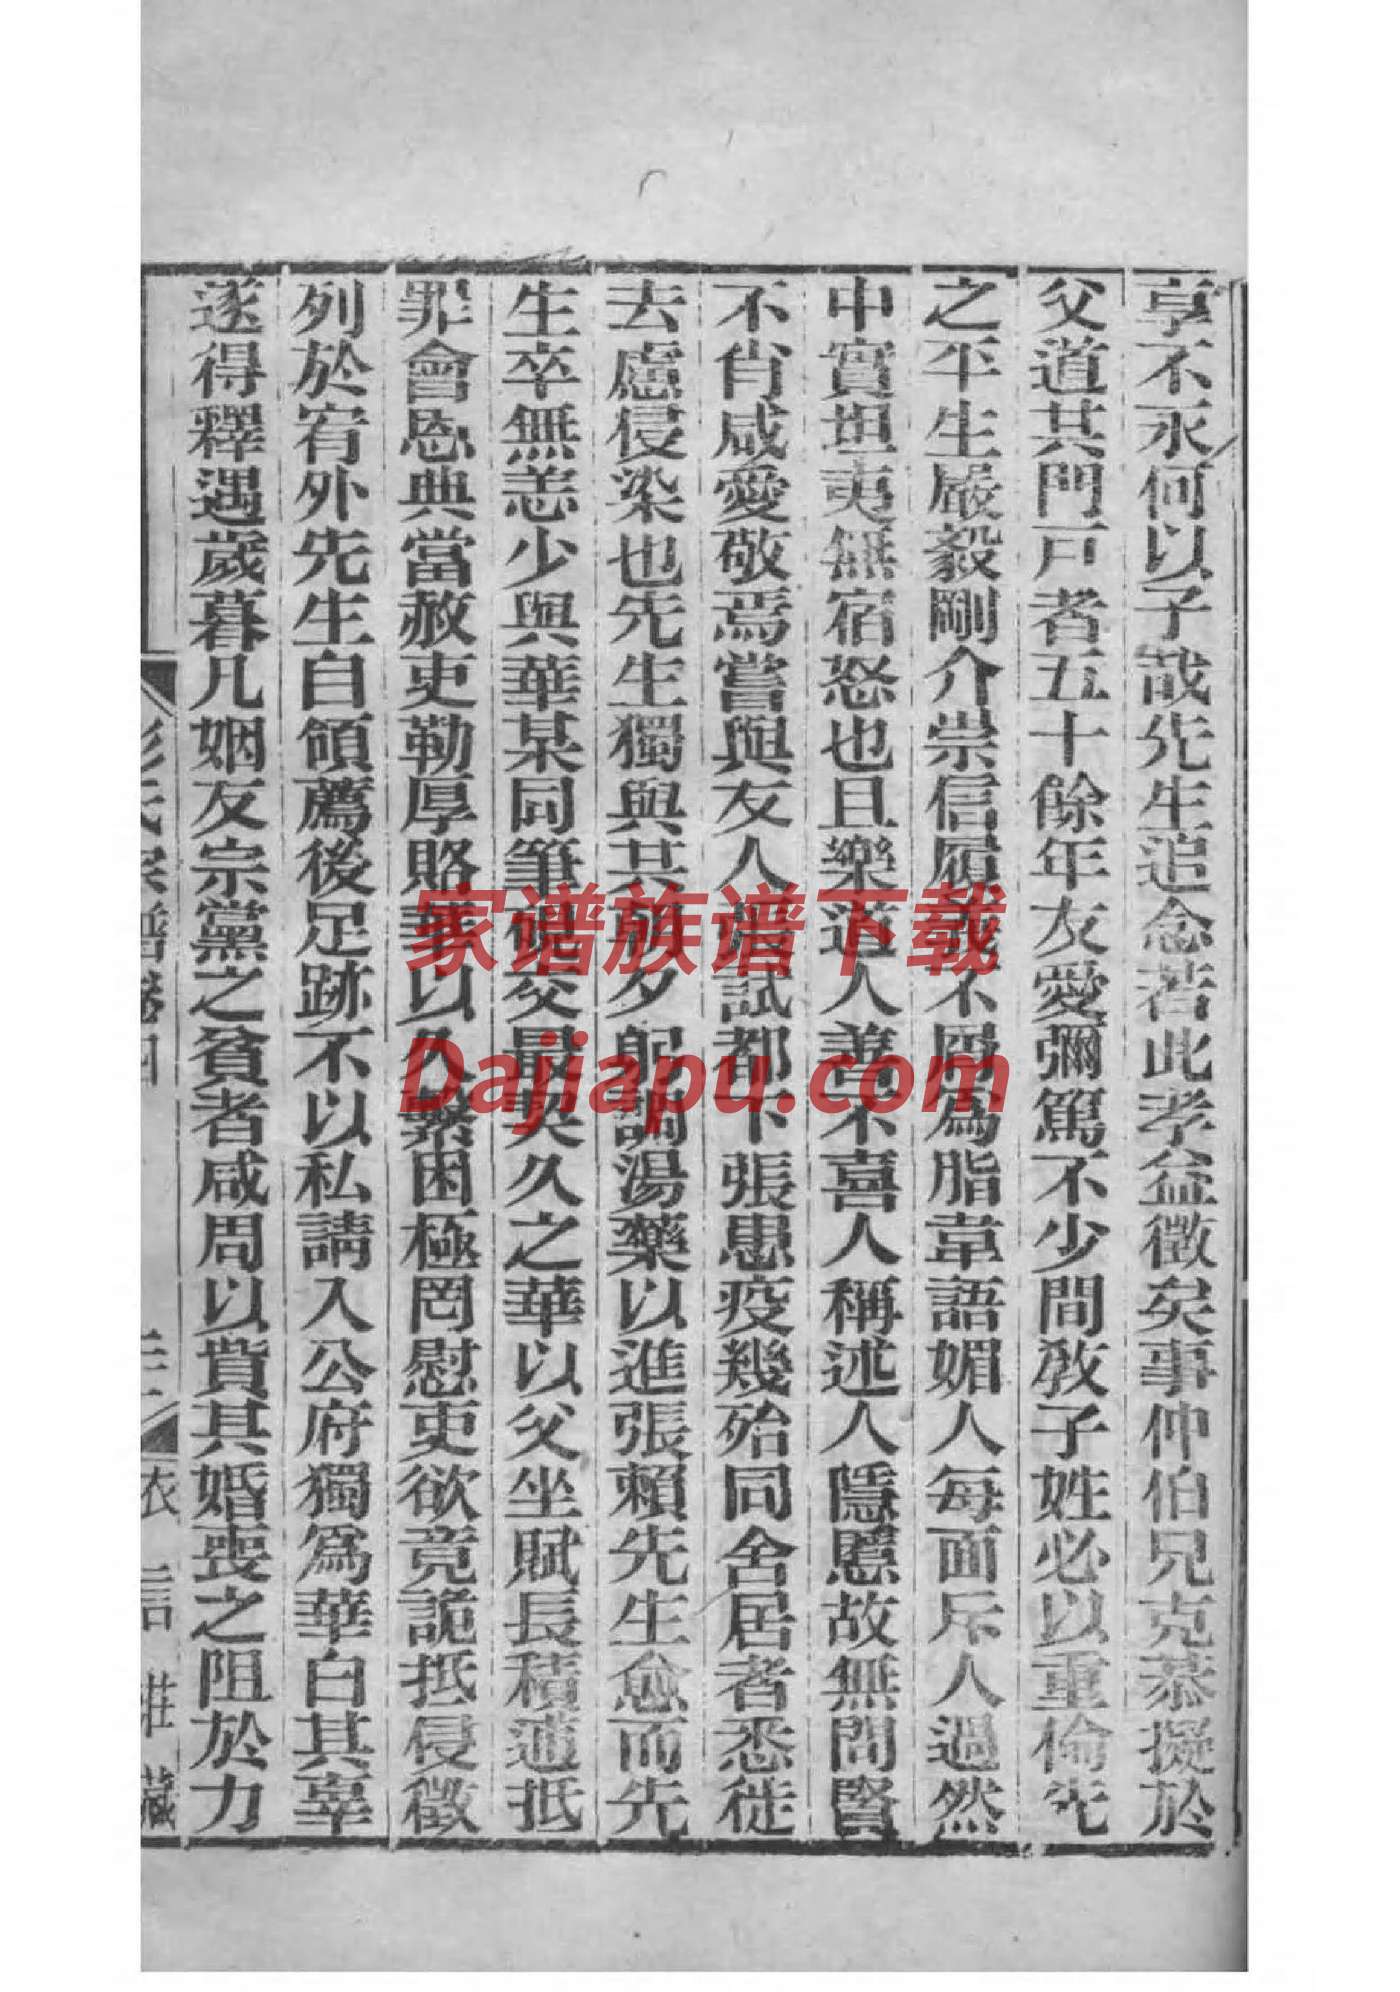 享不永何以子哉先生追念若此孝益徵矣事仲伯兄克恭擬於
父道其門戸者五十餘年友愛彌篤不少間敎子姓必以重倫先
之平生嚴毅剛介崇信履義不屑為脂韋語媚人每面斥人過然
中實坦夷無宿怒也且樂道人善不喜人稱述人隱慝故無問賢
不肖咸愛敬焉嘗與友人偕試都下張患疫幾殆同舍居者悉徙
去慮侵染也先生獨與其朝夕躬調湯藥以進張賴先生愈而先
生卒無恙少與華某同筆硯交最契久之華以父坐賦長積逋抵
罪會恩典當赦吏勒厚賂華以久繫困極罔慰吏欲竟詭抵侵徵
列於宥外先生自領薦後足跡不以私請入公府獨爲華白其辜
遂得釋遇歲暮凡姻友宗黨之貧者咸周以貲其婚喪之阻於力
彭氏宗譜卷四 三 衣言莊藏
家谱族谱下载
Dajiapu.com